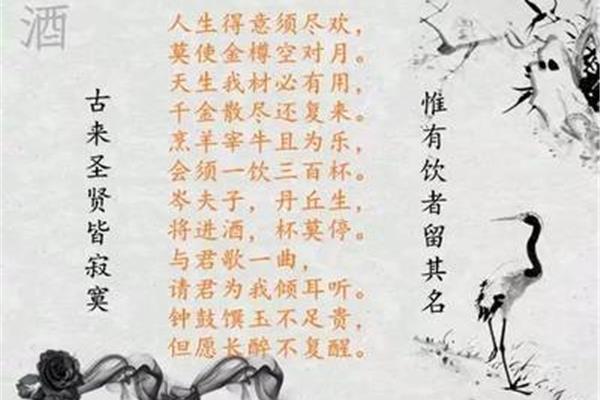 酒
人生得意须尽欢，
莫使金樽空对月。
天生我材必有用，
千金散尽还复来。
烹羊宰牛且为乐，
会须一饮三百杯。
岑夫子，丹丘生，
将进酒，杯莫停。
与君歌一曲，
请君为我倾耳听。
钟鼓馔玉不足贵，
但愿长醉不复醒。
古来圣贤皆寂寞
惟有饮者留其名